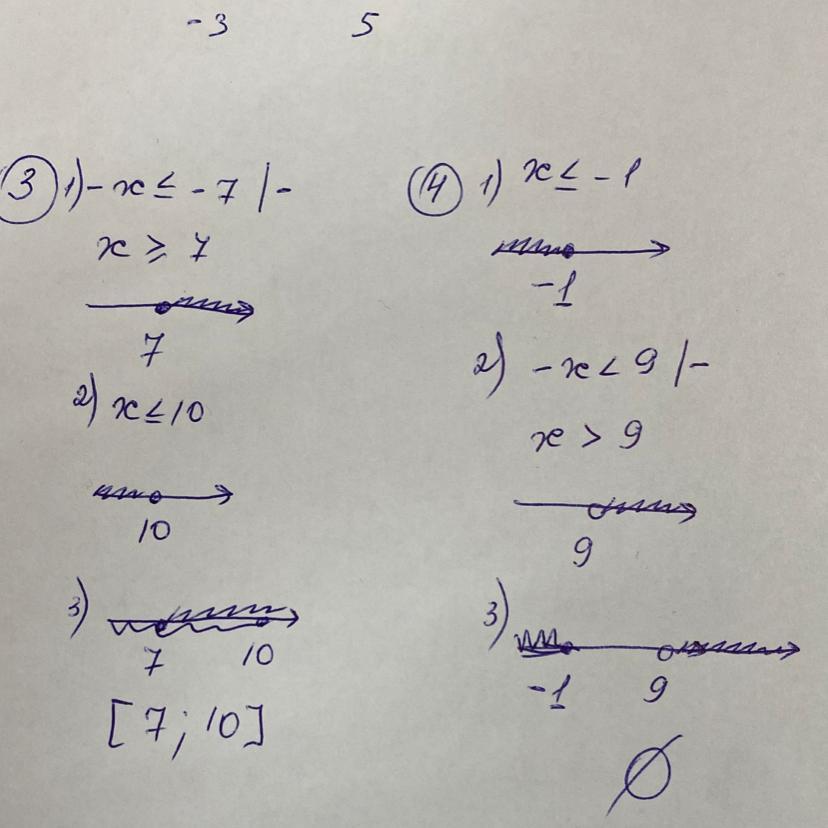 -3 5
③ 1) -x ≤ -7 |-
x ≥ 7
7
2) x ≤ 10
10
3)
7 10
[7; 10]
④ 1) x ≤ -1
-1
2) -x < 9 |-
x > 9
9
3)
-1 9
∅